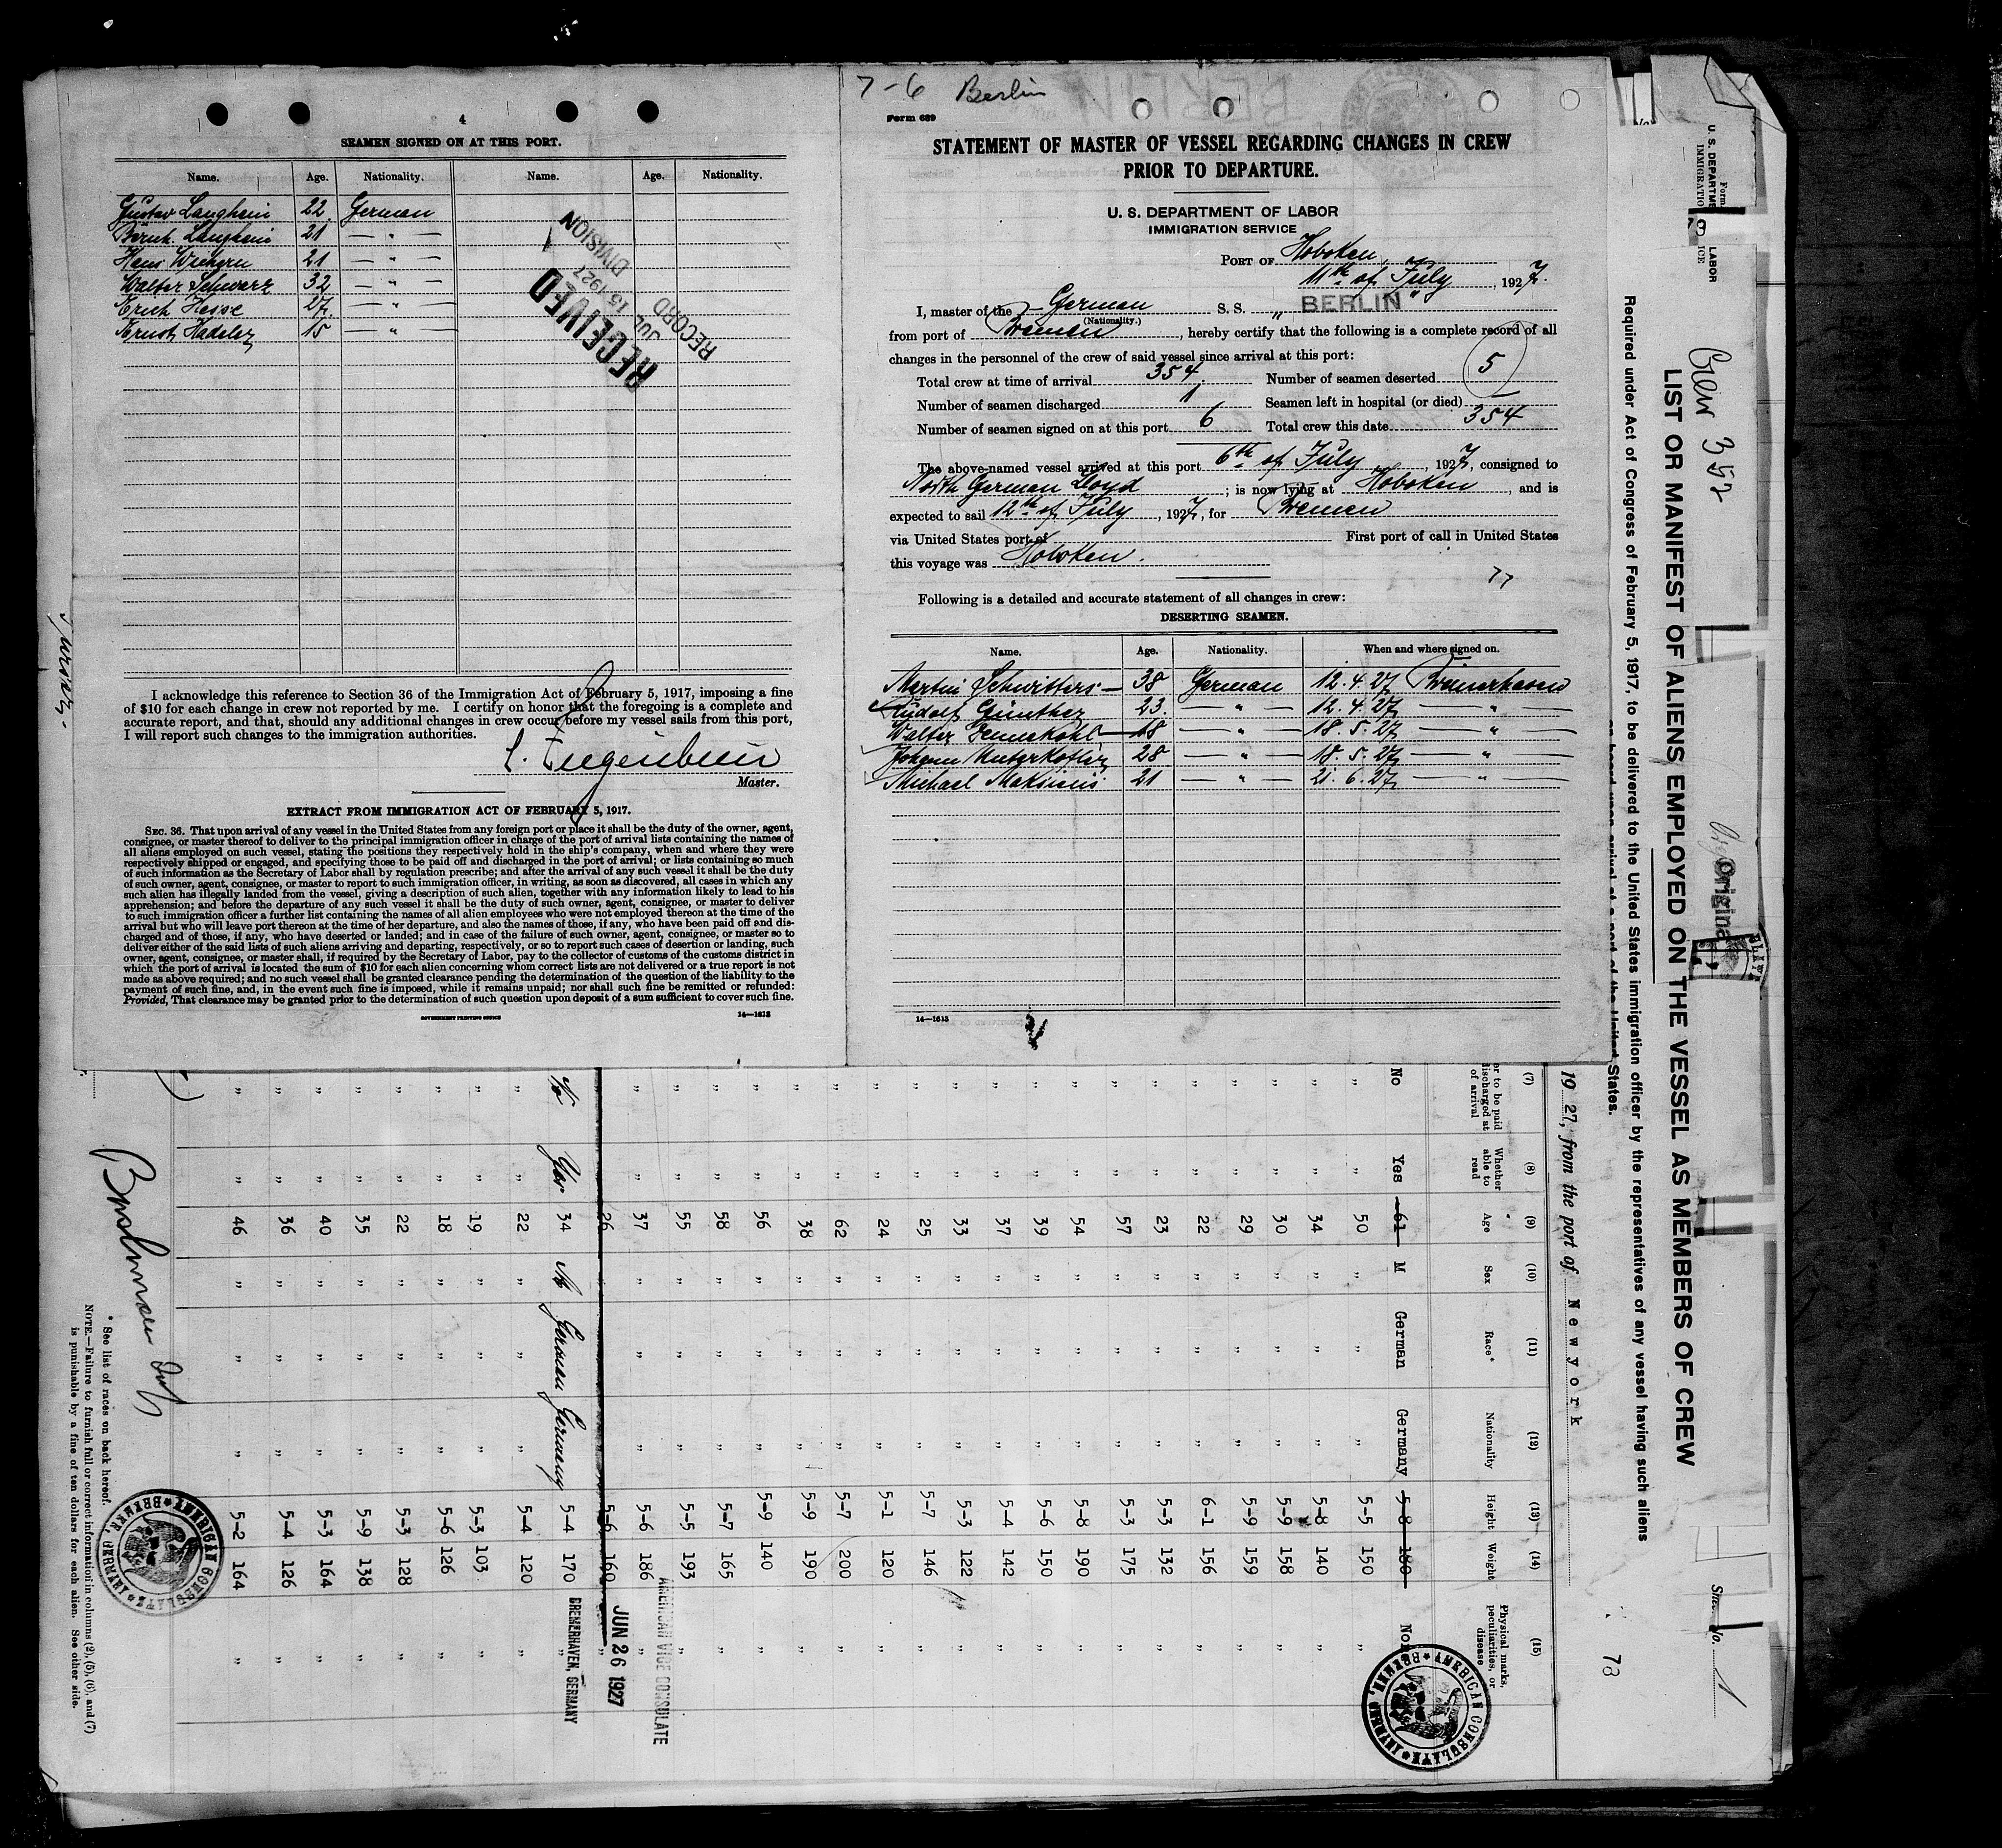 4
SEAMEN SIGNED ON AT THIS PORT.
Name. Age. Nationality. Name. Age. Nationality.
Gustav Langhein 22 German
Bernh. Langhein 21 — " —
Hans 21 — " —
Walter Schwarz 32 — " —
Erich Hesse 27 — " —
Ernst Hadeler 15 — " —
RECEIVED
JUL 15 1927
RECORD DIVISION
I acknowledge this reference to Section 36 of the Immigration Act of February 5, 1917, imposing a fine
of $10 for each change in crew not reported by me. I certify on honor that the foregoing is a complete and
accurate report, and that, should any additional changes in crew occur before my vessel sails from this port,
I will report such changes to the immigration authorities.
Master.
EXTRACT FROM IMMIGRATION ACT OF FEBRUARY 5, 1917.
SEC. 36. That upon arrival of any vessel in the United States from any foreign port or place it shall be the duty of the owner, agent,
consignee, or master thereof to deliver to the principal immigration officer in charge of the port of arrival lists containing the names of
all aliens employed on such vessel, stating the positions they respectively hold in the ship's company, when and where they were
respectively shipped or engaged, and specifying those to be paid off and discharged in the port of arrival; or lists containing so much
of such information as the Secretary of Labor shall by regulation prescribe; and after the arrival of any such vessel it shall be the duty
of such owner, agent, consignee, or master to report to such immigration officer, in writing, as soon as discovered, all cases in which any
such alien has illegally landed from the vessel, giving a description of such alien, together with any information likely to lead to his
apprehension; and before the departure of any such vessel it shall be the duty of such owner, agent, consignee, or master to deliver
to such immigration officer a further list containing the names of all alien employees who were not employed thereon at the time of the
arrival but who will leave port thereon at the time of her departure, and also the names of those, if any, who have been paid off and dis-
charged and of those, if any, who have deserted or landed; and in case of the failure of such owner, agent, consignee, or master so to
deliver either of the said lists of such aliens arriving and departing, respectively, or so to report such cases of desertion or landing, such
owner, agent, consignee, or master shall, if required by the Secretary of Labor, pay to the collector of customs of the customs district in
which the port of arrival is located the sum of $10 for each alien concerning whom correct lists are not delivered or a true report is not
made as above required; and no such vessel shall be granted clearance pending the determination of the question of the liability to the
payment of such fine, and, in the event such fine is imposed, while it remains unpaid; nor shall such fine be remitted or refunded:
Provided, That clearance may be granted prior to the determination of such question upon deposit of a sum sufficient to cover such fine.
GOVERNMENT PRINTING OFFICE 14—1613
7-6 Berlin
Form 689
STATEMENT OF MASTER OF VESSEL REGARDING CHANGES IN CREW
PRIOR TO DEPARTURE.
U. S. DEPARTMENT OF LABOR
IMMIGRATION SERVICE
PORT OF Hoboken,
11th of July, 1927.
I, master of the German S. S. „BERLIN"
(Nationality.)
from port of Bremen, hereby certify that the following is a complete record of all
changes in the personnel of the crew of said vessel since arrival at this port:
Total crew at time of arrival 354. Number of seamen deserted 5
Number of seamen discharged 1 Seamen left in hospital (or died) —
Number of seamen signed on at this port 6 Total crew this date 354
The above-named vessel arrived at this port 6th of July, 1927, consigned to
North German Lloyd; is now lying at Hoboken, and is
expected to sail 12th of July, 1927, for Bremen
via United States port of First port of call in United States
this voyage was Hoboken.
77
Following is a detailed and accurate statement of all changes in crew:
DESERTING SEAMEN.
Name. Age. Nationality. When and where signed on.
Martin Schwitters — 38 German 12.4.27 Bremerhaven
Rudolf Günther 23. — " — 12.4.27 — " —
Walter 18 — " — 18.5.27 — " —
Johann 28 — " — 18.5.27 — " —
Michael 21 — " — 21.6.27 — " —
14—1613
U. S. DEPARTME LABOR
IMMIGRATIO ICE
Form
Crew 352
Original
Sheet No. 1
LIST OR MANIFEST OF ALIENS EMPLOYED ON THE VESSEL AS MEMBERS OF CREW
Required under Act of Congress of February 5, 1917, to be delivered to the United States immigration officer by the representatives of any vessel having such aliens
on board upon arrival at a port of the United States.
78
1927, from the port of Newyork
(7) (8) (9) (10) (11) (12) (13) (14) (15)
or to be paid discharged at of arrival Whether able to read Age Sex Race* Nationality Height Weight Physical marks, peculiarities, or disease
No Yes 61 M German Germany 5-8 180 No
" " 50 " " " 5-5 150 "
" " 34 " " " 5-8 140 "
" " 30 " " " 5-9 158 "
" " 29 " " " 5-9 159 "
" " 22 " " " 6-1 156 "
" " 23 " " " 5-3 132 "
" " 57 " " " 5-3 175 "
" " 54 " " " 5-8 190 "
" " 39 " " " 5-6 150 "
" " 37 " " " 5-4 142 "
" " 33 " " " 5-3 122 "
" " 25 " " " 5-7 146 "
" " 24 " " " 5-1 120 "
" " 62 " " " 5-7 200 "
" " 38 " " " 5-9 190 "
" " 56 " " " 5-9 140 "
" " 58 " " " 5-7 165 "
" " 55 " " " 5-5 193 "
" " 37 " " " 5-6 186 "
26 5-6 160 "
No Yes 34 M German Germany 5-4 170 "
" " 22 " " " 5-4 120 "
" " 19 " " " 5-3 103 "
" " 18 " " " 5-6 126 "
" " 22 " " " 5-3 128 "
" " 35 " " " 5-9 138 "
" " 40 " " " 5-3 164 "
" " 36 " " " 5-4 126 "
" " 46 " " " 5-2 164 "
AMERICAN VICE CONSULATE
JUN 26 1927
BREMERHAVEN, GERMANY
AMERICAN CONSULATE
BREMEN, GERMANY
AMERICAN CONSULATE
BREMEN, GERMANY
* See list of races on back hereof.
NOTE.—Failure to furnish full or correct information in columns (2), (5), (6), and (7)
is punishable by a fine of ten dollars for each alien. See other side.